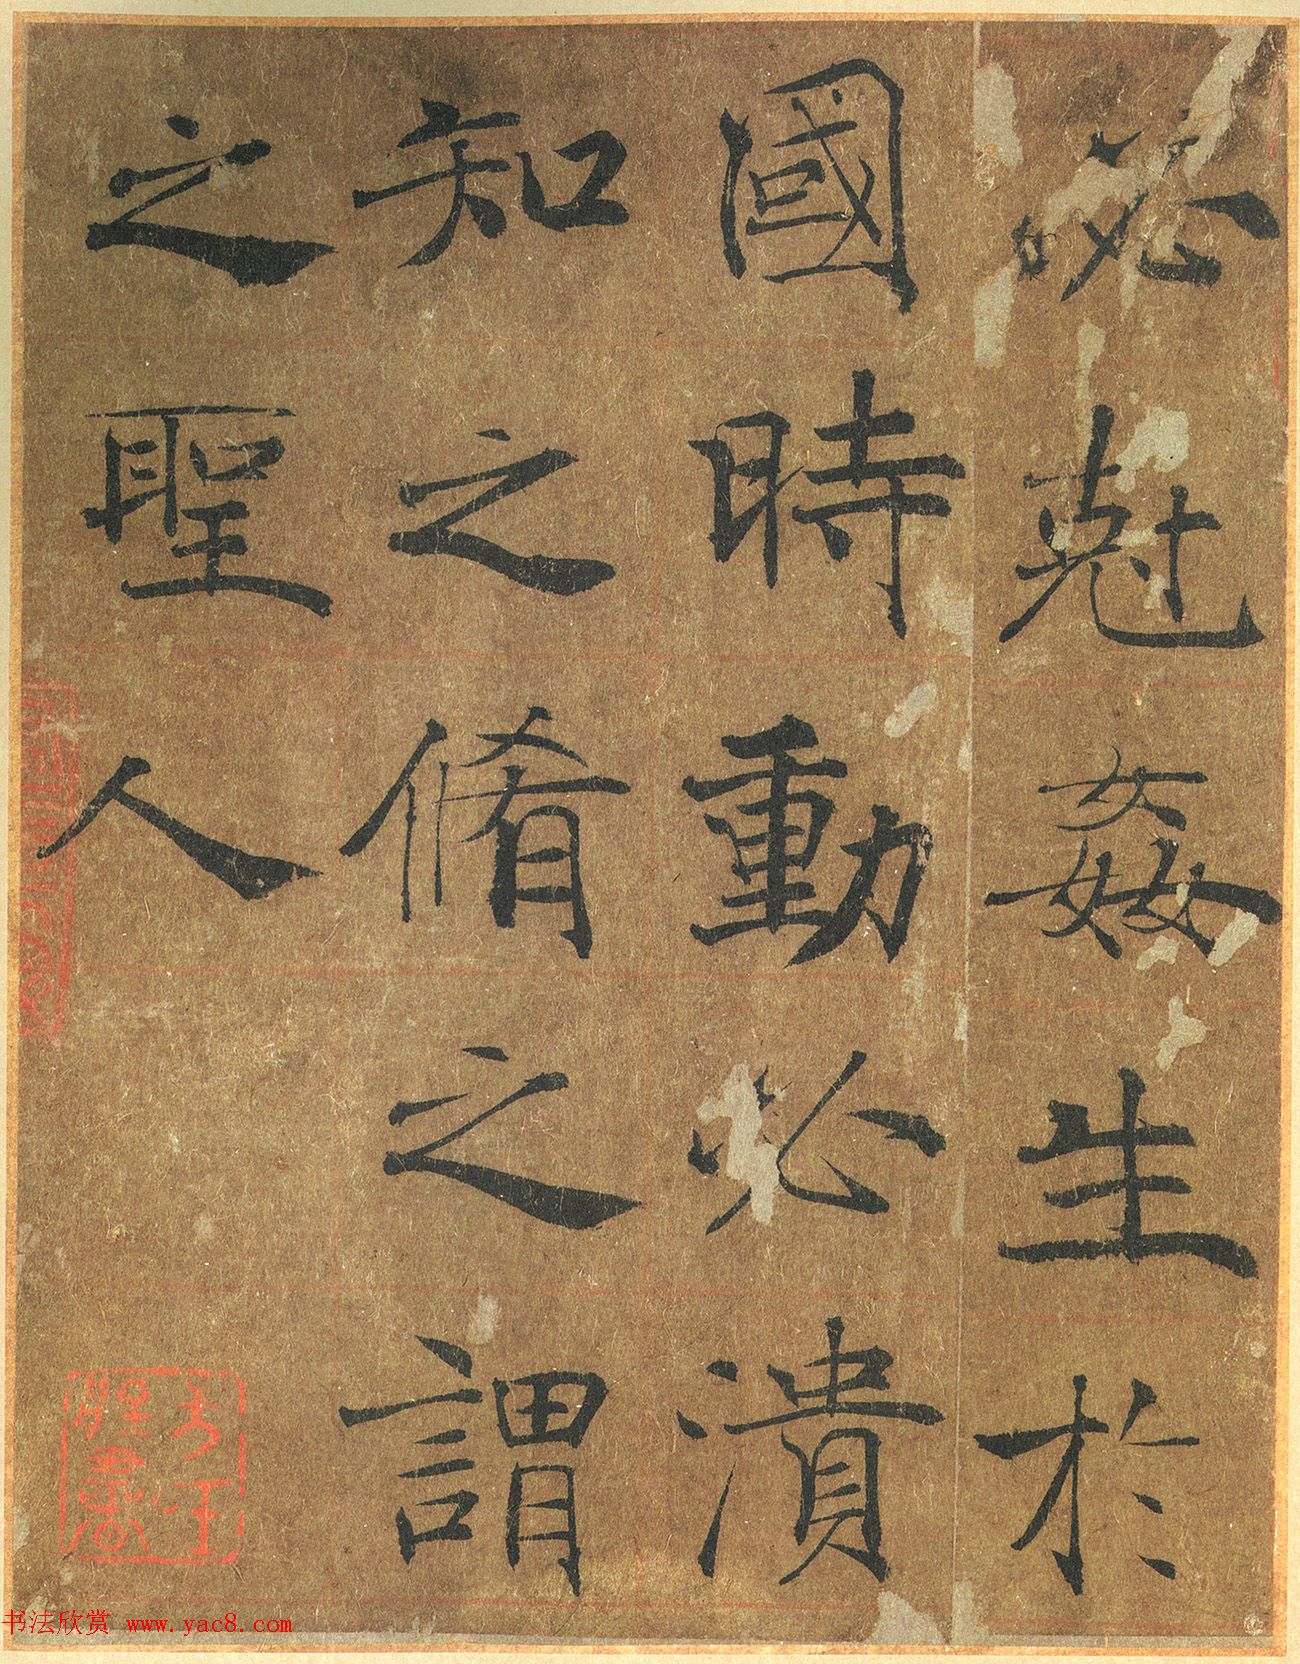 必克姦生於
國時動必潰
知之脩之謂
之聖人
书法欣赏 www.yac8.com